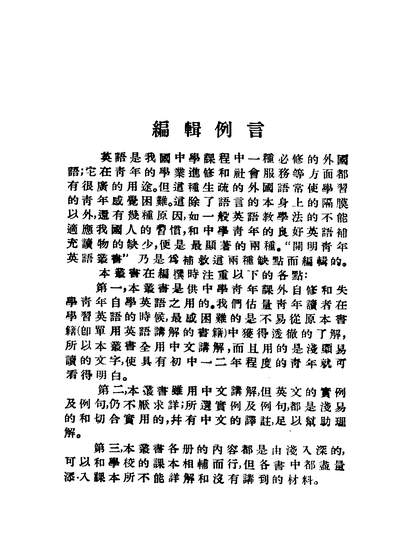 編輯例言
英語是我國中學課程中一種必修的外國
語;它在青年的學業進修和社會服務等方面都
有很廣的用途。但這種生疏的外國語常使學習
的青年感覺困難。這除了語言的本身上的隔膜
以外,還有幾種原因,如一般英語教學法的不能
適應我國人的習慣,和中學青年的良好英語補
充讀物的缺少,便是最顯著的兩種。“開明青年
英語叢書”乃是爲補救這兩種缺點而編輯的。
本叢書在編撰時注重以下的各點:
第一,本叢書是供中學青年課外自修和失
學青年自學英語之用的。我們估量青年讀者在
學習英語的時候,最感困難的是不易從原本書
籍(卽單用英語講解的書籍)中獲得透徹的了解,
所以本叢書全用中文講解,而且用的是淺顯易
讀的文字,使具有初中一二年程度的青年就可
看得明白。
第二,本叢書雖用中文講解,但英文的實例
及例句,仍不厭求詳;所選實例及例句,都是淺易
的和切合實用的,幷有中文的譯註,足以幫助理
解。
第三,本叢書各册的內容都是由淺入深的,
可以和學校的課本相輔而行,但各書中都盡量
添入課本所不能詳解和沒有講到的材料。